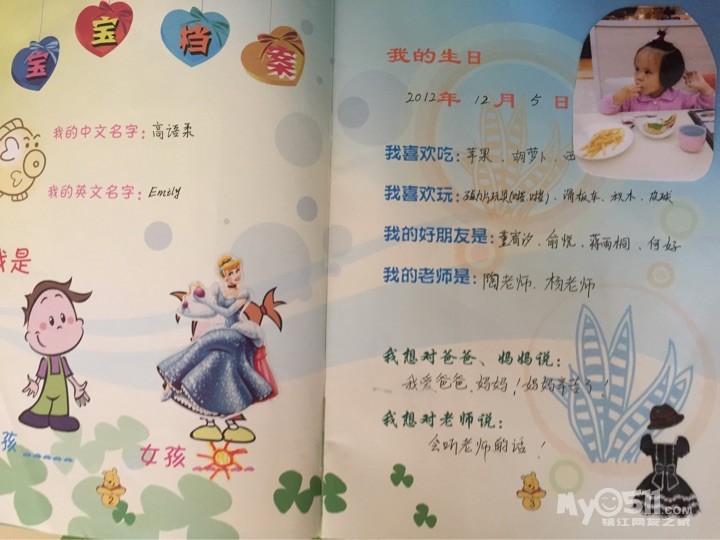 宝宝档案
我的中文名字：高语柔
我的英文名字：Emily
我是
孩
女孩
2
我的生日
2012年 12月 5日
我喜欢吃：苹果、胡萝卜、西
我喜欢玩：滑板车、积木、皮球
我的好朋友是：董宥汐、俞悦、蒋雨桐、何好
我的老师是：陶老师、杨老师
我想对爸爸、妈妈说：
我爱爸爸、妈妈！妈妈辛苦了！
我想对老师说：
会听老师的话！
3
My0511.com
镇江网友之家